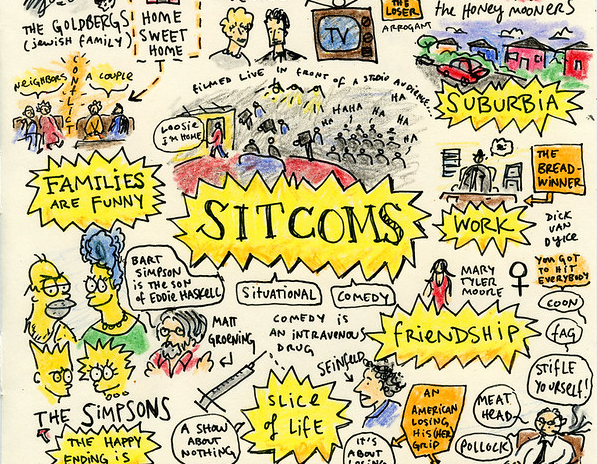 THE GOLDBERGS
(JEWISH FAMILY)
HOME
SWEET
HOME
TV
THE
LOSER
ARROGANT
the HONEY MOONERS
NEIGHBORS
CONFLICT
A COUPLE
FILMED LIVE IN FRONT OF A STUDIO AUDIENCE...
HAHA
HA
HA
HA
HA
HA
HA
LOOSIE
I'M HOME
SUBURBIA
FAMILIES
ARE FUNNY
SITCOMS
THE
BREAD-
WINNER
WORK
DICK
VAN
DYKE
BART
SIMPSON
IS THE SON
OF
EDDIE HASKELL
SITUATIONAL
COMEDY
MARY
TYLER
MOORE
YOU GOT
TO HIT
EVERYBODY
COON
FAG
STIFLE
YOURSELF!
MATT
GROENING
COMEDY IS
AN INTRAVENOUS
DRUG
FRIENDSHIP
SEINFELD
THE SIMPSONS
THE HAPPY
ENDING IS
A SHOW
ABOUT
NOTHING
SLICE
of LIFE
IT'S
ABOUT
LOSING
AN
AMERICAN
LOSING,
HIS(HER)
GRIP
MEAT
HEAD
POLLOCK